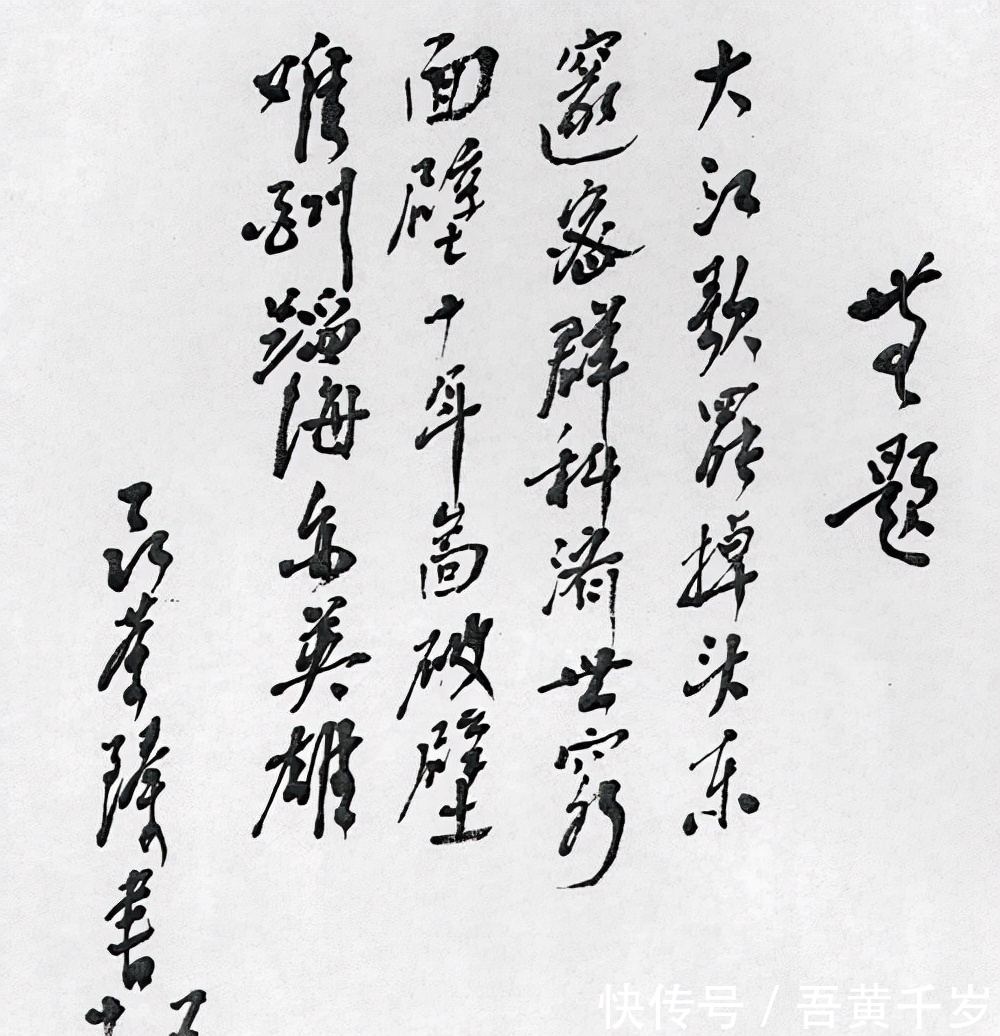 無题
大江歌罢掉头东
邃密群科济世穷
面壁十年啚破壁
难酬蹈海亦英雄
聂荣臻書
快传号 / 吾黄千岁